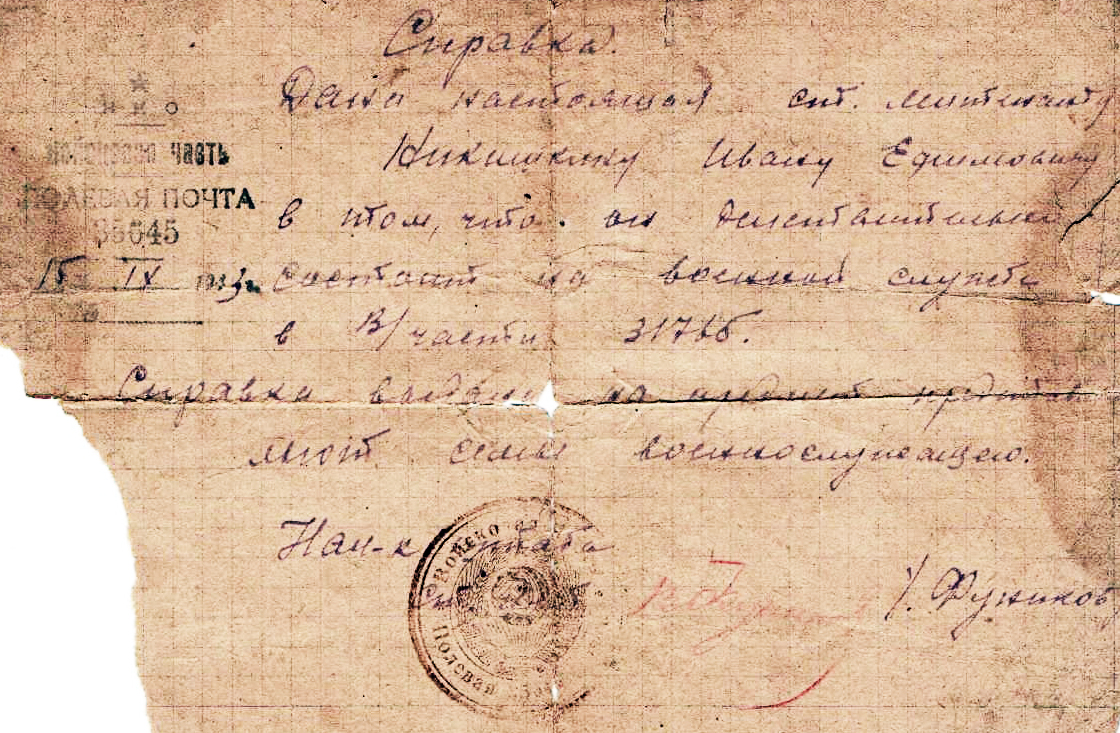 Справка.
Дана настоящая ст. лейтенанту
Никишкину Ивану Ефимовичу
в том, что он действительно
состоит на военной службе
в В/части 31766.
Справка выдана на предмет
семье военнослужащего.
Нач-к штаба
/. Фуников
НКО
войсковая часть
ПОЛЕВАЯ ПОЧТА
35645
15 IX
Войско
Полевая